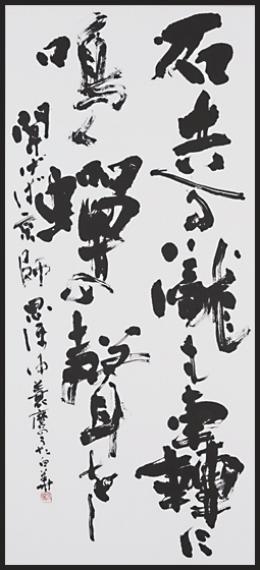 石走る瀧も轟に
鳴く蝉の聲をし
聞けば京師思ほゆ蓑麿